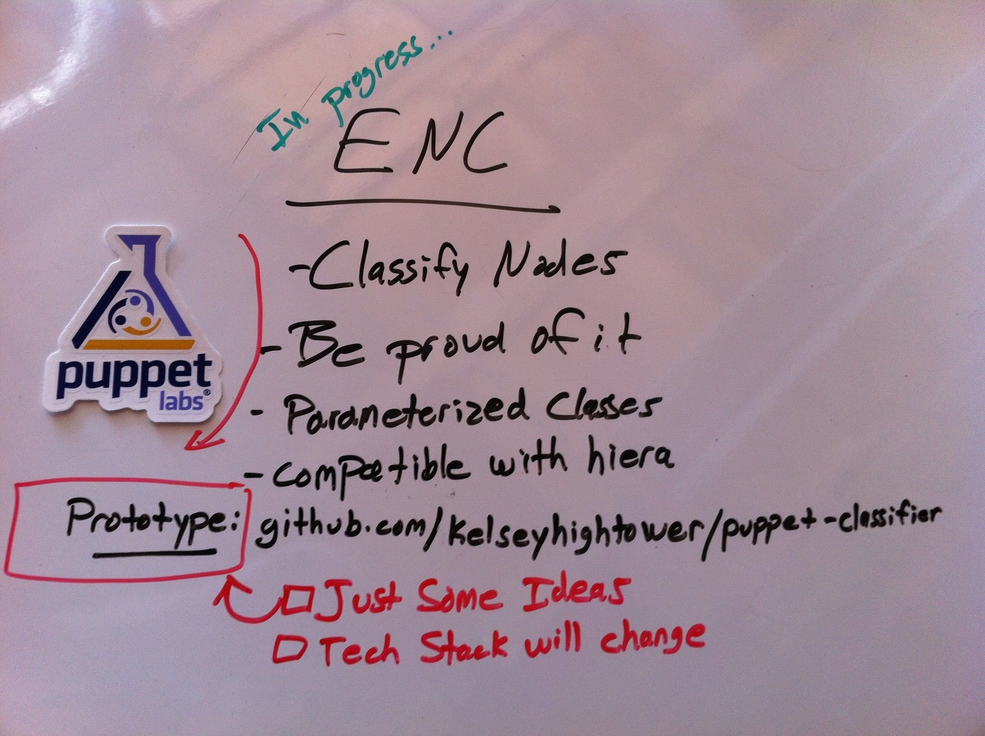 In progress...
ENC
- Classify Nodes
- Be proud of it
- Parameterized Classes
- compatible with hiera
puppet
labs®
Prototype: github.com/kelseyhightower/puppet-classifier
Just Some Ideas
Tech Stack will change